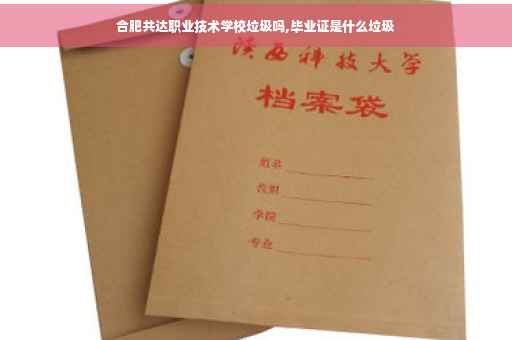 合肥共达职业技术学校垃圾吗,毕业证是什么垃圾
陕西科技大学
档案袋
姓名
教职
学院
专业